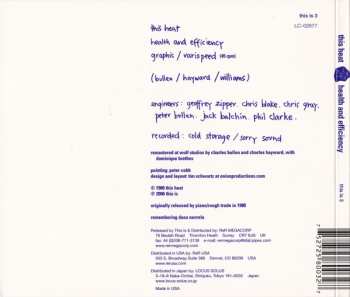 this is 3
LC-02677
this heat
health and efficiency
graphic / varispeed (45 rpm)
(bullen / hayward / williams)
engineers: geoffrey zipper. chris blake. chris gray.
peter bullen. jack balchin. phil clarke.
recorded: cold storage / sorry sound
remastered at wolf studios by charles bullen and charles hayward, with
dominique brethes
painting peter cobb
design and layout tim schwartz at
℗ 1980 this heat
© 2006 this is
originally released by piano/rough trade in 1980
remembering dave norvela
Released by This is & Distributed by ReR MEGACORP
79 Beulah Road Thornton Heath Surrey CR7 8JG UK
www.rermegacorp.com
Distributed in USA by ReR USA
Denver, CO 80206 USA
www.rerusa.com
Distributed in Japan by LOCUS SOLUS
www.locus-solus.co.jp
Made in USA
this heat
health and efficiency
this is 3